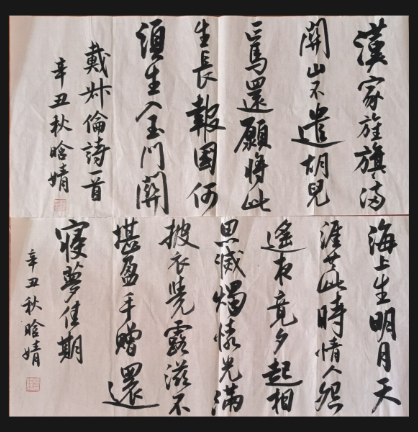 漢家旌旗滿
關山不遣胡兒
匹馬還願將此
生長報國何
須生入玉門關
戴叔倫詩一首
辛丑秋晗婧
海上生明月天
涯共此時情人怨
遙夜竟夕起相
思滅燭憐光滿
披衣覺露滋不
堪盈手贈還
寢夢佳期
辛丑秋晗婧